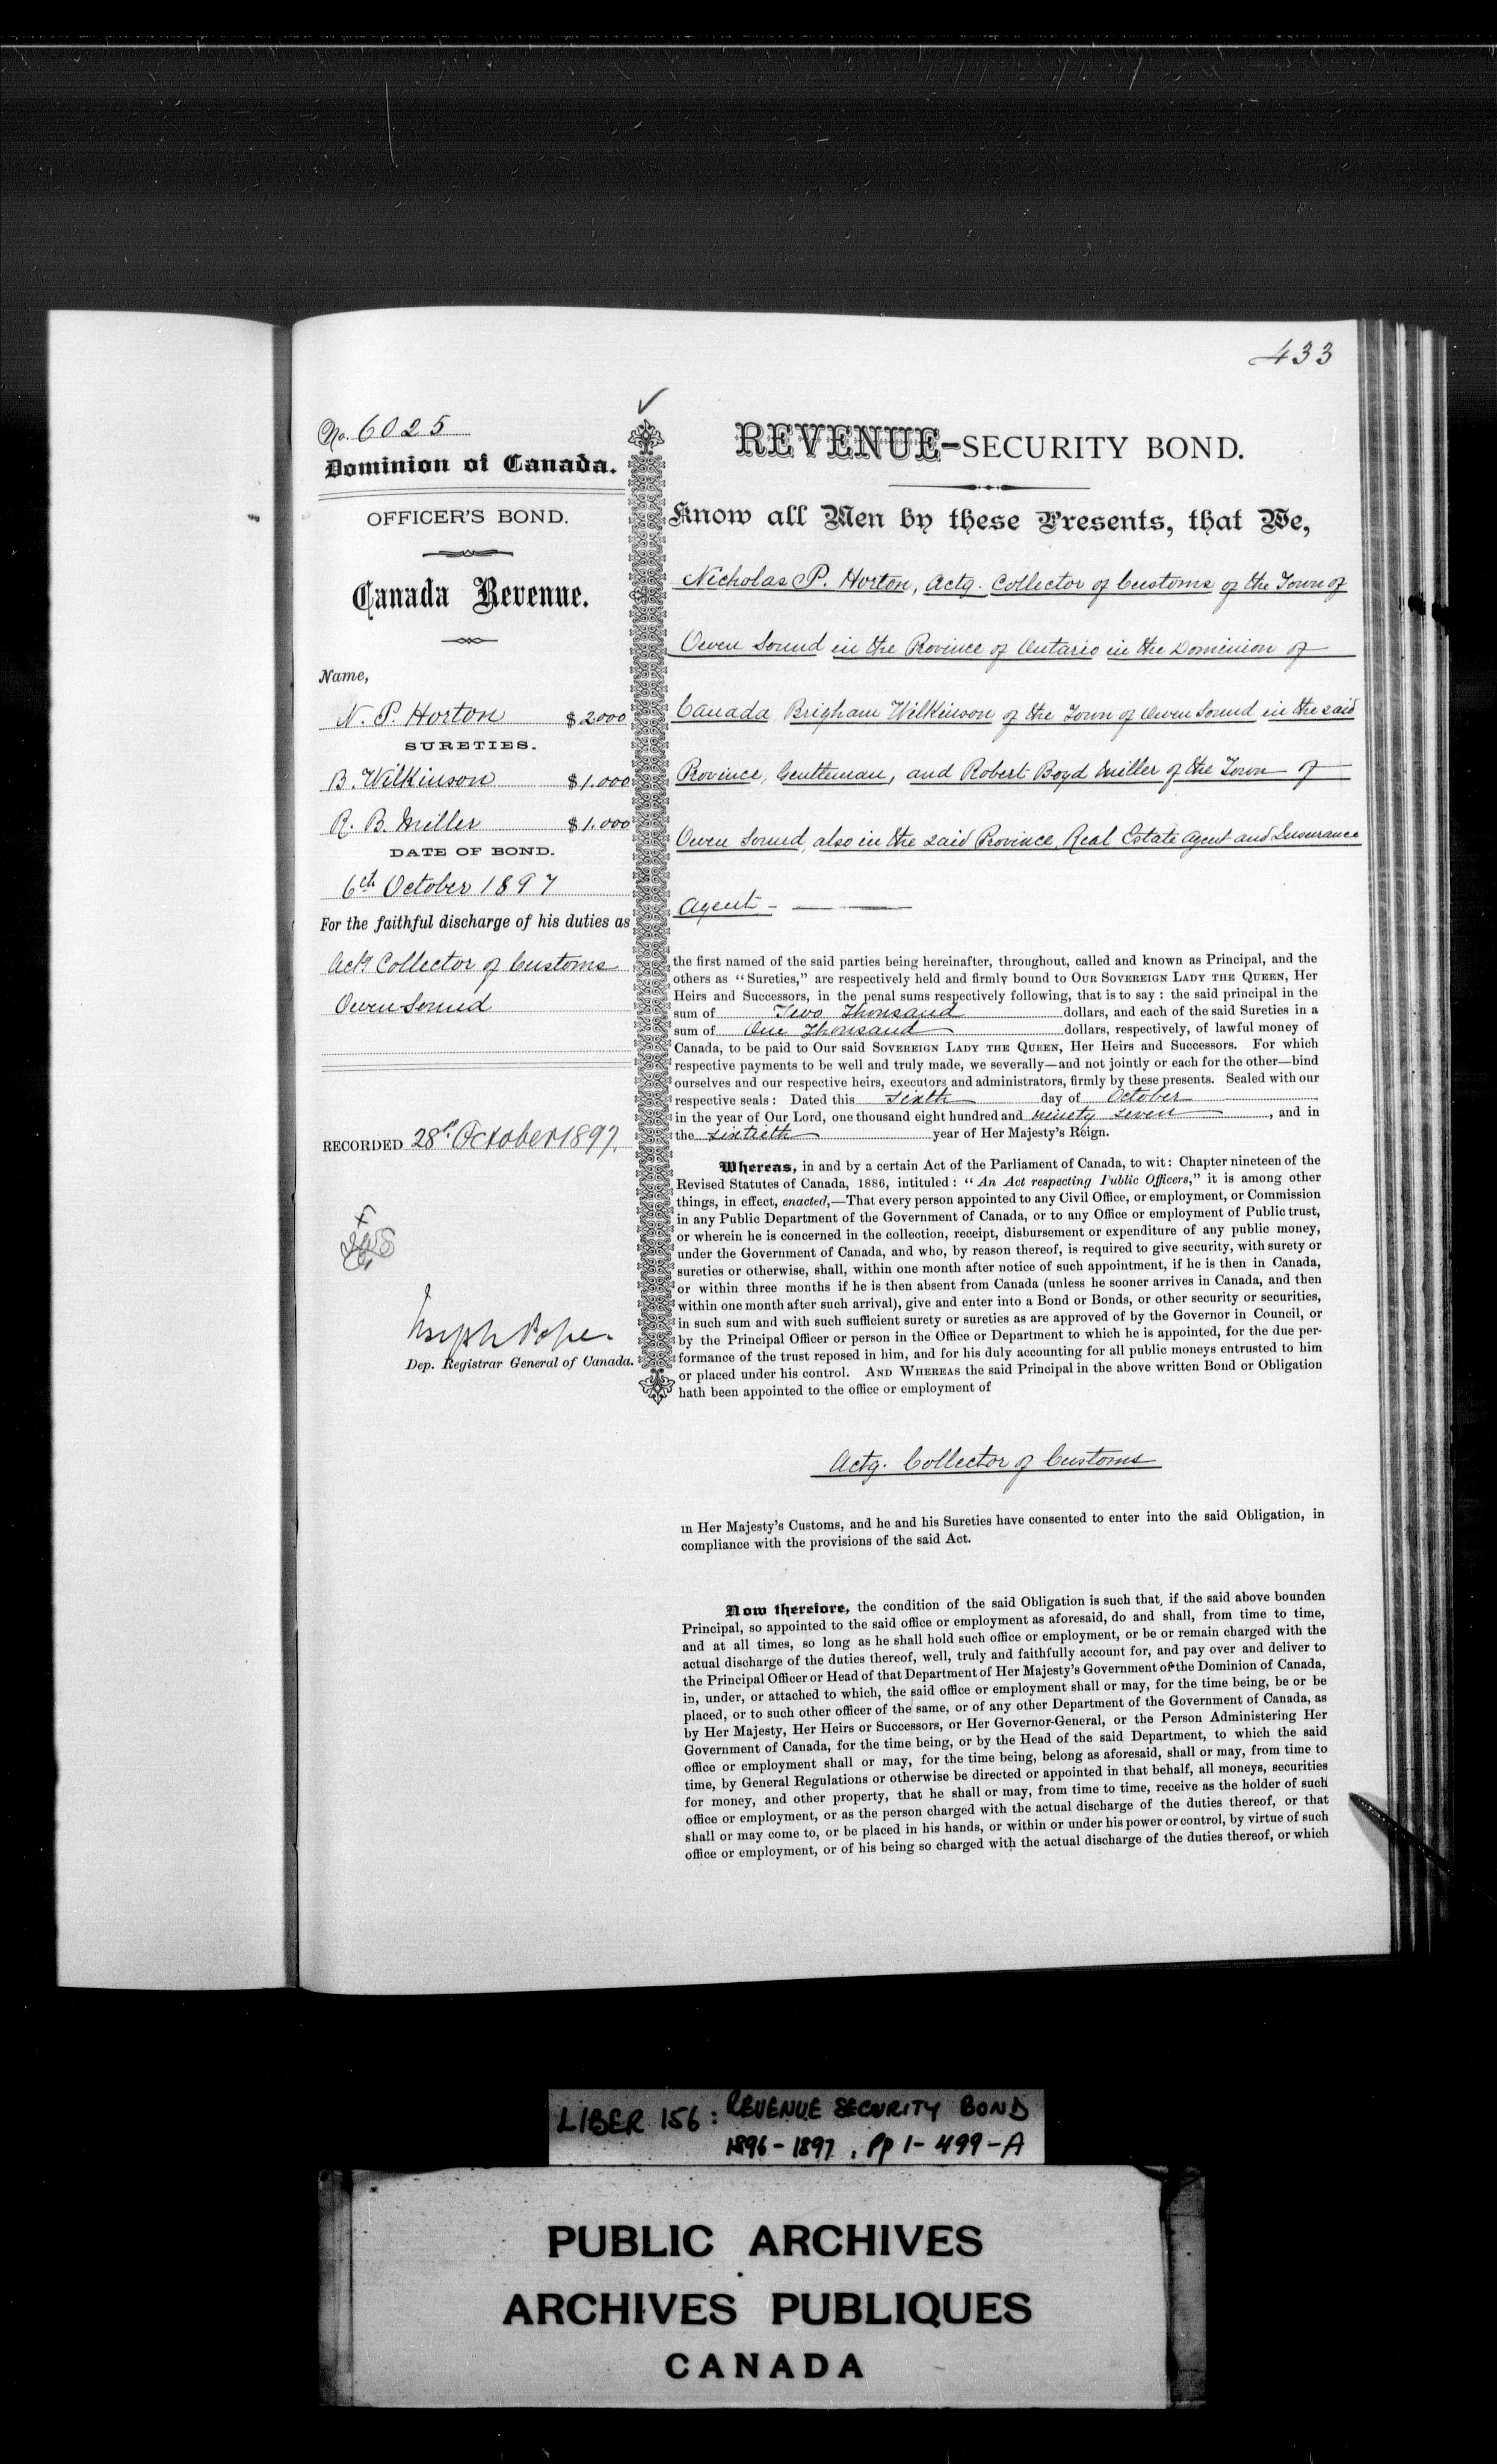 433
No. 6025
Dominion of Canada.
OFFICER'S BOND.
Canada Revenue.
Name,
N. P. Horton $2000
SURETIES.
B. Wilkinson $1.000
R. B. Miller $1.000
DATE OF BOND.
6th October 1897
For the faithful discharge of his duties as
Actg Collector of Customs
Owen Sound
RECORDED 28th October 1897.
Joseph Pope.
Dep. Registrar General of Canada.
REVENUE-SECURITY BOND.
Know all Men by these Presents, that We,
Nicholas P. Horton, Actg. Collector of Customs of the Town of
Owen Sound in the Province of Ontario in the Dominion of
Canada, Brigham Wilkinson of the Town of Owen Sound in the said
Province, Gentleman, and Robert Boyd Miller of the Town of
Owen Sound, also in the said Province, Real Estate Agent and Insurance
Agent -
the first named of the said parties being hereinafter, throughout, called and known as Principal, and the
others as "Sureties," are respectively held and firmly bound to OUR SOVEREIGN LADY THE QUEEN, Her
Heirs and Successors, in the penal sums respectively following, that is to say : the said principal in the
sum of Two Thousand dollars, and each of the said Sureties in a
sum of One Thousand dollars, respectively, of lawful money of
Canada, to be paid to Our said SOVEREIGN LADY THE QUEEN, Her Heirs and Successors. For which
respective payments to be well and truly made, we severally—and not jointly or each for the other—bind
ourselves and our respective heirs, executors and administrators, firmly by these presents. Sealed with our
respective seals : Dated this sixth day of October
in the year of Our Lord, one thousand eight hundred and ninety seven , and in
the sixtieth year of Her Majesty's Reign.
Whereas, in and by a certain Act of the Parliament of Canada, to wit: Chapter nineteen of the
Revised Statutes of Canada, 1886, intituled : "An Act respecting Public Officers," it is among other
things, in effect, enacted,—That every person appointed to any Civil Office, or employment, or Commission
in any Public Department of the Government of Canada, or to any Office or employment of Public trust,
or wherein he is concerned in the collection, receipt, disbursement or expenditure of any public money,
under the Government of Canada, and who, by reason thereof, is required to give security, with surety or
sureties or otherwise, shall, within one month after notice of such appointment, if he is then in Canada,
or within three months if he is then absent from Canada (unless he sooner arrives in Canada, and then
within one month after such arrival), give and enter into a Bond or Bonds, or other security or securities,
in such sum and with such sufficient surety or sureties as are approved of by the Governor in Council, or
by the Principal Officer or person in the Office or Department to which he is appointed, for the due per-
formance of the trust reposed in him, and for his duly accounting for all public moneys entrusted to him
or placed under his control. AND WHEREAS the said Principal in the above written Bond or Obligation
hath been appointed to the office or employment of
Actg. Collector of Customs
in Her Majesty's Customs, and he and his Sureties have consented to enter into the said Obligation, in
compliance with the provisions of the said Act.
Now therefore, the condition of the said Obligation is such that, if the said above bounden
Principal, so appointed to the said office or employment as aforesaid, do and shall, from time to time,
and at all times, so long as he shall hold such office or employment, or be or remain charged with the
actual discharge of the duties thereof, well, truly and faithfully account for, and pay over and deliver to
the Principal Officer or Head of that Department of Her Majesty's Government of the Dominion of Canada,
in, under, or attached to which, the said office or employment shall or may, for the time being, be or be
placed, or to such other officer of the same, or of any other Department of the Government of Canada, as
by Her Majesty, Her Heirs or Successors, or Her Governor-General, or the Person Administering Her
Government of Canada, for the time being, or by the Head of the said Department, to which the said
office or employment shall or may, for the time being, belong as aforesaid, shall or may, from time to
time, by General Regulations or otherwise be directed or appointed in that behalf, all moneys, securities
for money, and other property, that he shall or may, from time to time, receive as the holder of such
office or employment, or as the person charged with the actual discharge of the duties thereof, or that
shall or may come to, or be placed in his hands, or within or under his power or control, by virtue of such
office or employment, or of his being so charged with the actual discharge of the duties thereof, or which
LIBER 156 : REVENUE SECURITY BOND
1896 - 1897 , Pp 1 - 499 - A
PUBLIC ARCHIVES
ARCHIVES PUBLIQUES
CANADA